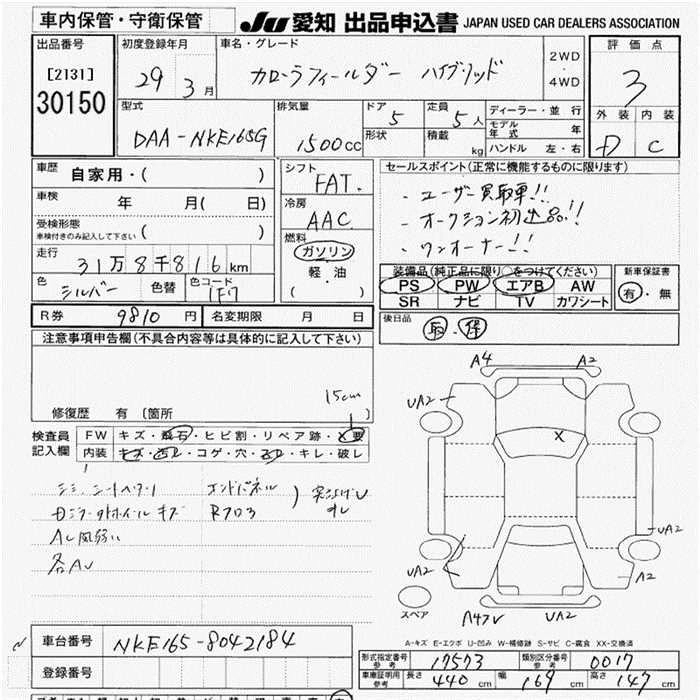 車内保管・守衛保管 JU 愛知 出品申込書 JAPAN USED CAR DEALERS ASSOCIATION
出品番号 初度登録年月 車名・グレード 評価点
[2131] 29 3月 カローラフィールダー ハイブリッド 2WD・4WD 3
30150
型式 排気量 ドア 定員 ディーラー・並行 外装 内装
DAA-NKE165G 1500cc 5 5人 モデル年式 年 D C
形状 積載 kg ハンドル 左・右
車歴 自家用・( ) シフト FAT. セールスポイント(正常に機能するものに限ります)
車検 年 月( 日) 冷房 AAC ・ユーザー買取車!!
受検形態 ・オークション初出品!!
車検付きのみ記入して下さい ( ) 燃料 ・ワンオーナー!!
走行 31万8千816km ガソリン
軽・油
( )
装備品(純正品に限り○をつけてください) 新車保証書
色 シルバー 色替 色コード 1F7 PS PW エアB AW 有・無
SR ナビ TV カワシート
R券 9810円 名変期限 月 日 後日品
取・保
注意事項申告欄(不具合内容等は具体的に記入して下さい)
A4 A2
UA2
15cm
修復歴 有 [箇所 ]
検査員記入欄 FW キズ・飛石・ヒビ割・リペア跡・X要
内装 キズ・汚レ・コゲ・穴・キレ・破レ
X
エンドパネル
R703
UA2
UA2
A2
スペア UA2
A-キズ E-エクボ U-凹み W-補修跡 S-サビ C-腐食 XX-交換済
車台番号 NKE165-8042184
型式指定番号 参考 17573 類別区分番号 参考 0017
登録番号 車庫証明用 参考 長さ 440cm 幅 169cm 高さ 147cm